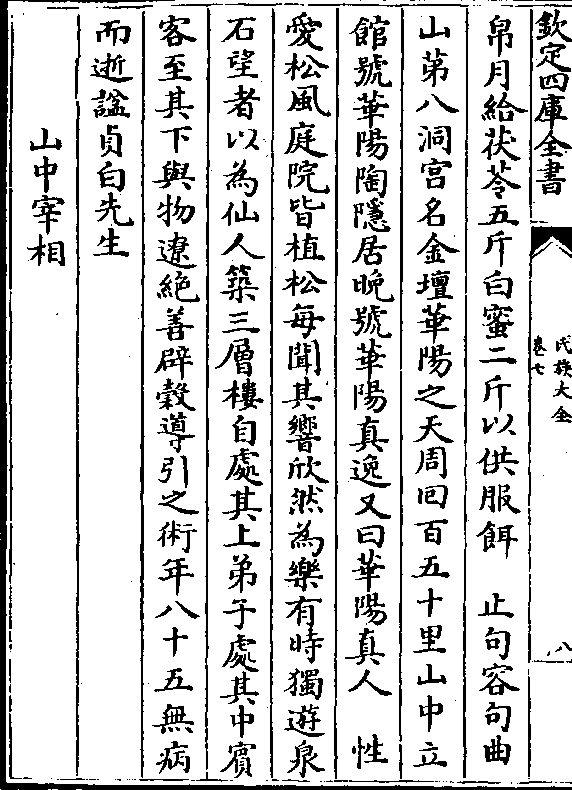 欽定四庫全書
氏族大全
卷七
八
帛月給茯苓五斤白蜜二斤以供服餌　止句容句曲
山苐八洞宫名金壇華陽之天周回百五十里山中立
館號華陽陶隱居晚號華陽真逸又曰華陽真人　性
愛松風庭院皆植松每聞其響欣然為樂有時獨遊泉
石望者以為仙人築三層樓自處其上弟子處其中賓
客至其下與物遼絶善辟穀導引之術年八十五無病
而逝諡貞白先生
山中宰相